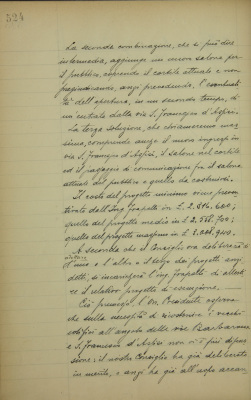 524
La seconda combinazione, che si può dire
intermedia, aggiunge un nuovo salone per
il pubblico, coprendo il cortile attuale e non
pregiudicando, anzi precostituendo, l'eventualità
dell'apertura, in un secondo tempo, di
un'entrata dalla via S. Francesco d'Assisi.
La terza soluzione, che chiameremo mas
sima, comprende anche il nuovo ingresso in
via S. Francesco d'Assisi, il salone nel cortile
ed il passaggio di comunicazione fra il salone
attuale del pubblico e quello da costruirsi.
Il costo del progetto minimo viene preven
tivato dall'Ing. in L.
quello del progetto medio in L.
quello del progetto massimo in L.
A seconda che il Consiglio ora delibererà di
l'uno o l'altro o il terzo dei progetti anzi
detti, si incaricherà l'Ing. di allesti
re il relativo progetto di esecuzione.
Ciò premesso l'On. Presidente espone
che sulla necessità di riordinare i vecchi
edifici all'angolo delle vie Barbaroux
e S. Francesco d'Assisi non vi è più discus
sione; il nostro Consiglio ha già deliberato
in merito, e anzi ha già all'uopo accan